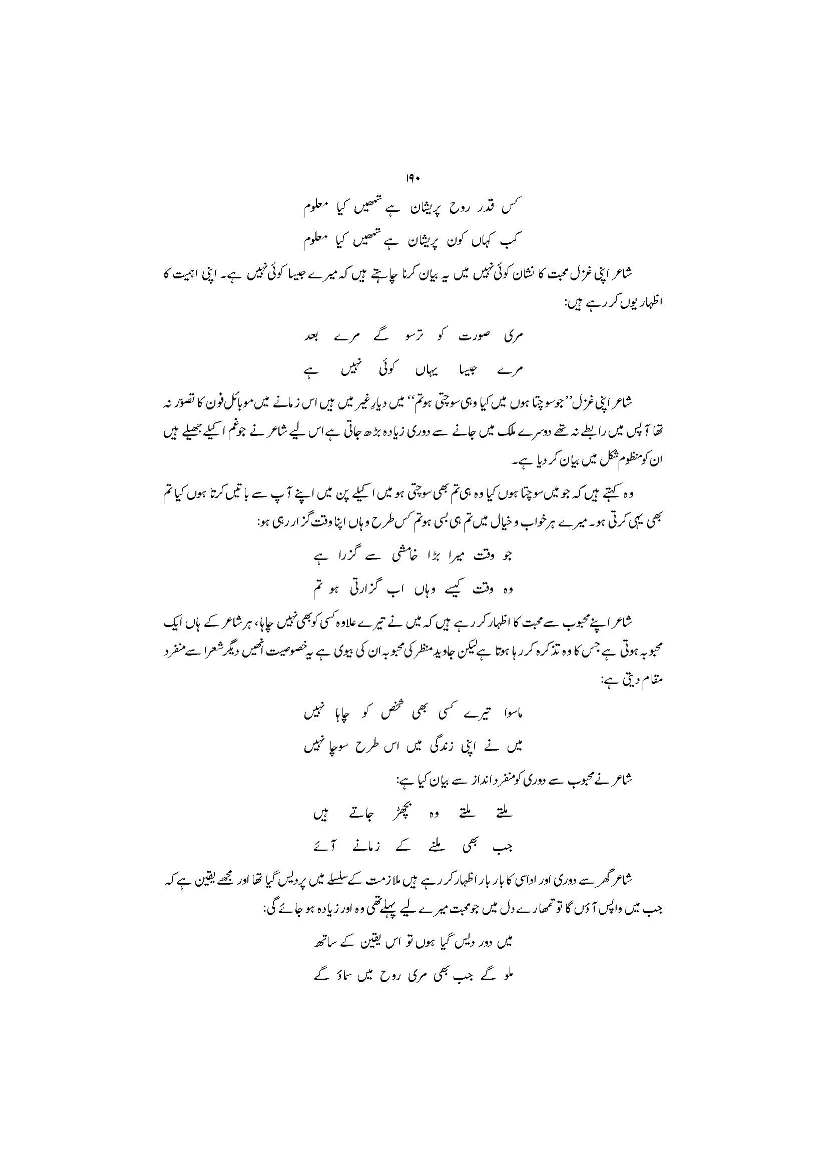 ۱۹۰
کس قدر روح پریشان ہے تمھیں کیا معلوم
کب کہاں کون پریشان ہے تمھیں کیا معلوم
شاعر اپنی غزل محبت کا نشان کوئی نہیں میں یہ بیان کرنا چاہتے ہیں کہ میرے جیسا کوئی نہیں ہے۔ اپنی اہمیت کا
اظہار یوں کر رہے ہیں:
مری صورت کو ترسو گے مرے بعد
مرے جیسا یہاں کوئی نہیں ہے
شاعر اپنی غزل ’’جو سوچتا ہوں میں کیا وہی سوچتی ہو تم‘‘ میں دیارِ غیر میں ہیں اس زمانے میں موبائل فون کا تصوّر نہ
تھا آپس میں رابطے نہ تھے دوسرے ملک میں جانے سے دوری زیادہ بڑھ جاتی ہے اس لیے شاعر نے جو غم اکیلے جھیلے ہیں
ان کو منظوم شکل میں بیان کر دیا ہے۔
وہ کہتے ہیں کہ جو میں سوچتا ہوں کیا وہ ہی تم بھی سوچتی ہو میں اکیلے پن میں اپنے آپ سے باتیں کرتا ہوں کیا تم
بھی یہی کرتی ہو۔ میرے ہر خواب و خیال میں تم ہی بسی ہو تم کس طرح وہاں اپنا وقت گزار رہی ہو:
جو وقت میرا بڑا خامشی سے گزرا ہے
وہ وقت کیسے وہاں اب گزارتی ہو تم
شاعر اپنے محبوب سے محبت کا اظہار کر رہے ہیں کہ میں نے تیرے علاوہ کسی کو بھی نہیں چاہا، ہر شاعر کے ہاں ایک
محبوبہ ہوتی ہے جس کا وہ تذکرہ کر رہا ہوتا ہے لیکن جاوید منظر کی محبوبہ ان کی بیوی ہے یہ خصوصیت انھیں دیگر شعرا سے منفرد
مقام دیتی ہے:
ماسوا تیرے کسی بھی شخص کو چاہا نہیں
میں نے اپنی زندگی میں اس طرح سوچا نہیں
شاعر نے محبوب سے دوری کو منفرد انداز سے بیان کیا ہے:
ملتے ملتے وہ بچھڑ جاتے ہیں
جب بھی ملنے کے زمانے آئے
شاعر گھر سے دوری اور اداسی کا بار بار اظہار کر رہے ہیں ملازمت کے سلسلے میں پردیس گیا تھا اور مجھے یقین ہے کہ
جب میں واپس آؤں گا تو تمھارے دل میں جو محبت میرے لیے پہلے تھی وہ اور زیادہ ہو جائے گی:
میں دور دیس گیا ہوں تو اس یقین کے ساتھ
ملو گے جب بھی مری روح میں سماؤ گے